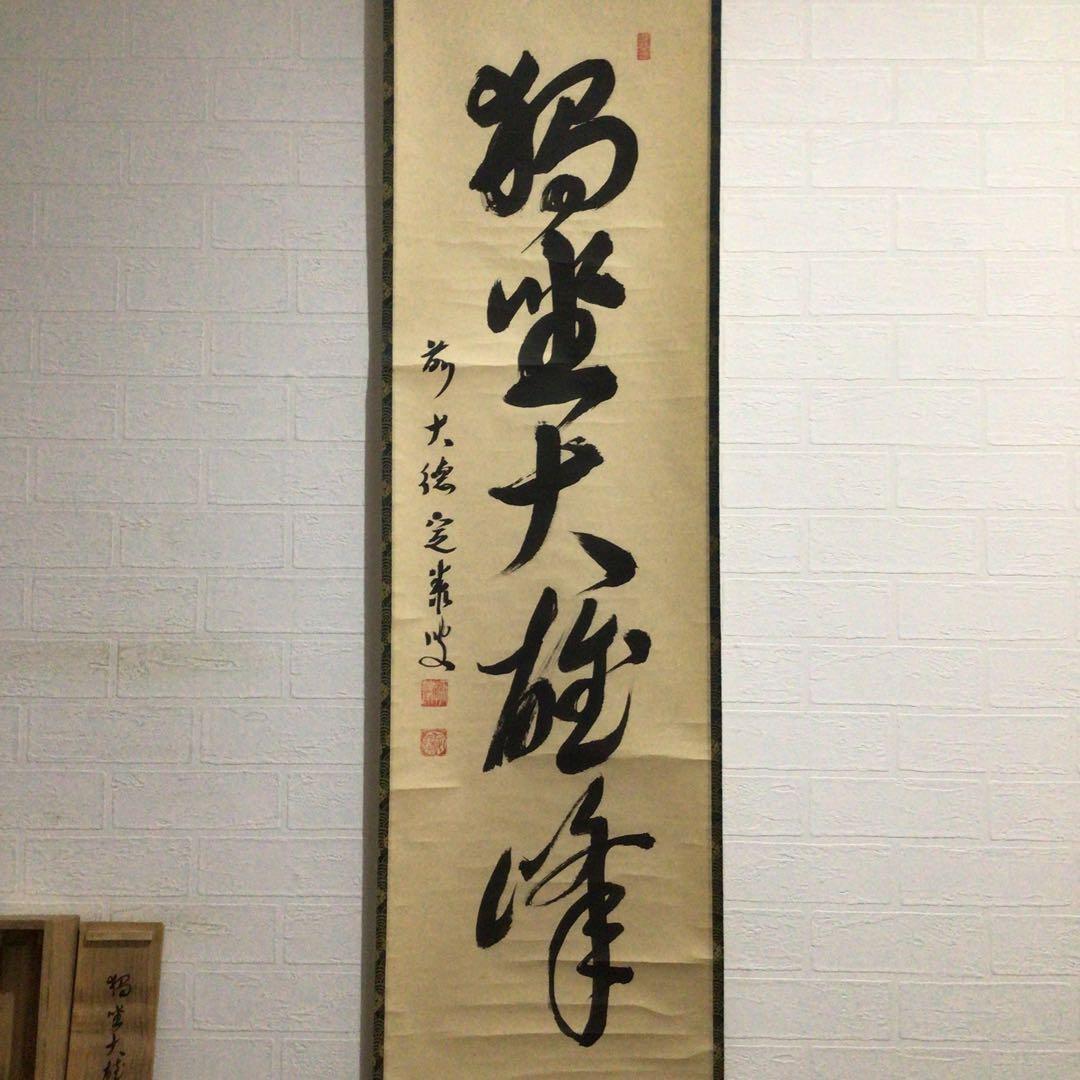 獨坐大雄峰
前大徳定叢叟
獨坐大雄